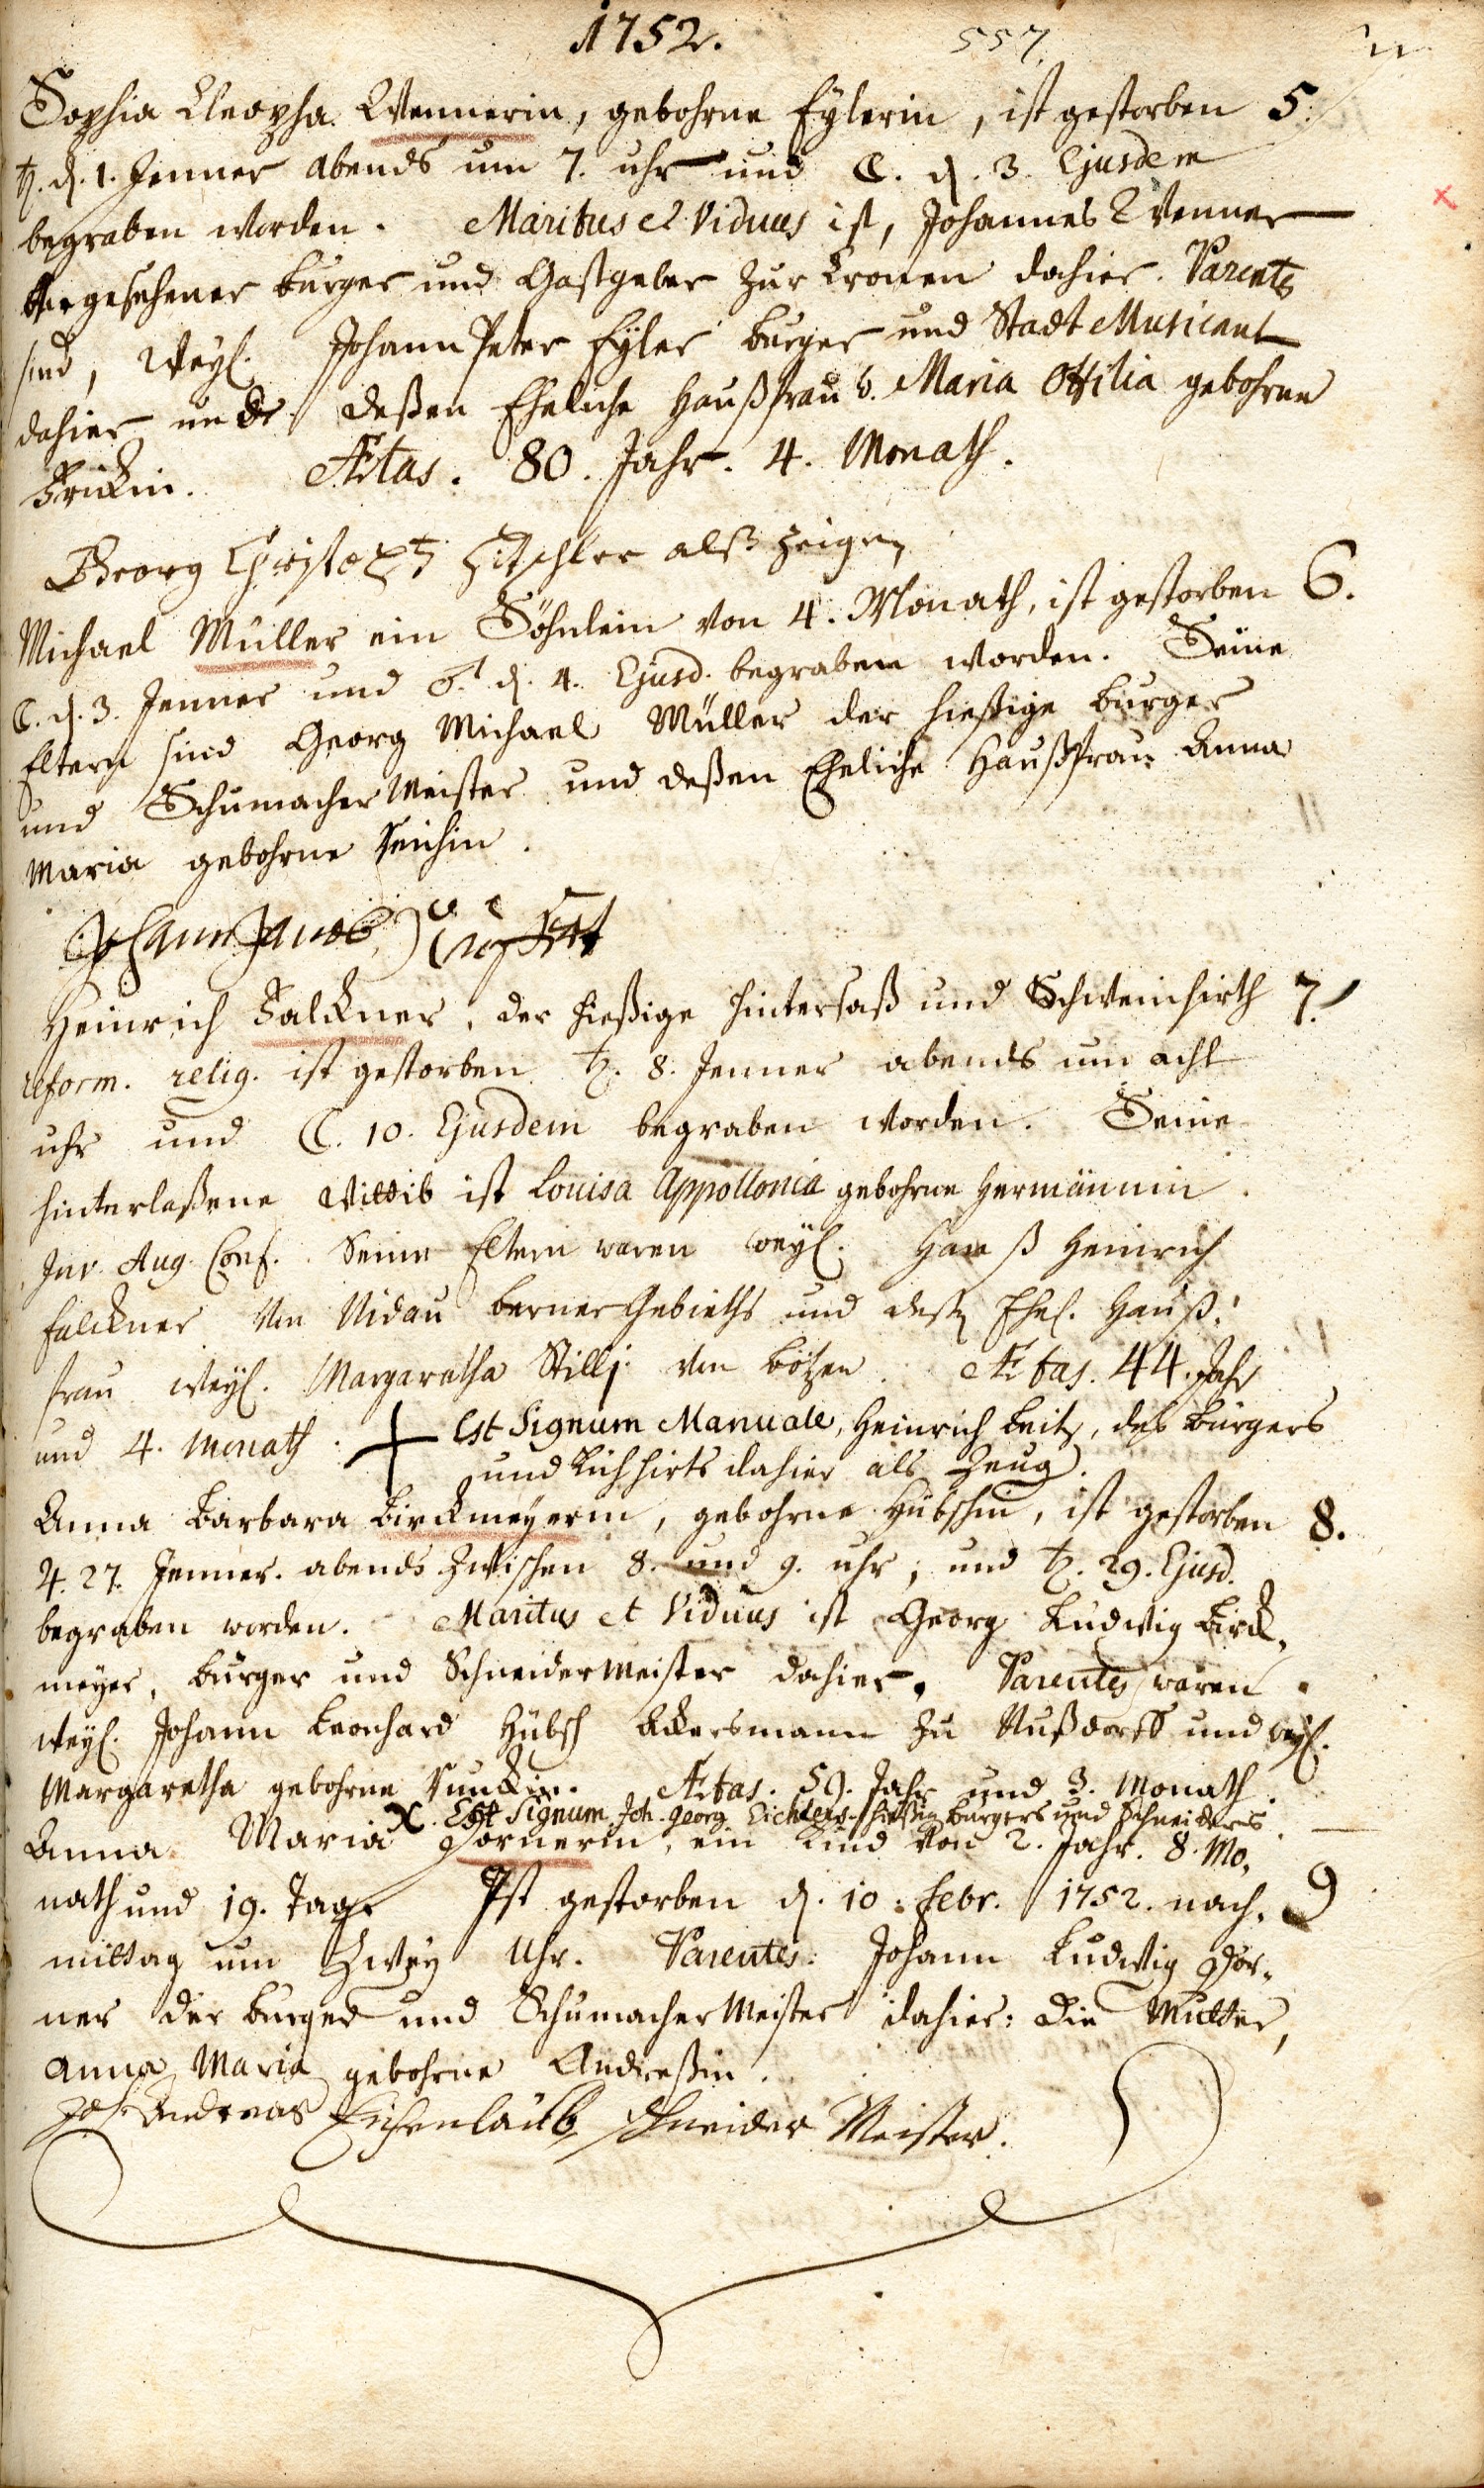 1752.
557
Sophia Cleopha Wennerin, gebohrne Eylerin, ist gestorben 5.
♄. d. 1. Jenner abends um 7. uhr und ☾. d. 3. Ejusdem
begraben worden. Maritus et Viduus ist, Johannes Wenner
Burger und Gastgeber zur Cronen dahier. Parentes
sind, weyl. Johann Peter Eyler burger und Stadt Musicant
dahier und deßen Eheliche Haußfrau Maria Ottilia gebohrne
Frickin. Ætas. 80. Jahr. 4. Monath.
Georg Christoph alß Zeigen
Michael Müller ein Söhnlein von 4. Monath, ist gestorben 6.
☾. d. 3. Jenner und ♂. d. 4. Ejusd. begraben worden. Seine
Eltern sind Georg Michael Müller der hießige burger
und Schumacher Meister und deßen Eheliche Haußfrau Anna
Maria gebohrne
Johann Jacob
Heinrich Falckner, der hießige hintersaß und Schweinhirth 7.
reform. relig. ist gestorben ♄. 8. Jenner abends um acht
uhr und ☾. 10. Ejusdem begraben worden. Seine
hinterlaßene Wittib ist Louisa Appollonia gebohrne Hermännin.
Inv. Aug. Conf. Seine Eltern waren weyl. Hanß Heinrich
Falckner von Nidau berner Gebieths und deßen Ehel. Hauß-
frau weyl. Margaretha Stilli von bötzen. Ætas. 44. Jahr
und 4. Monath. + Est Signum Manuale, Heinrich Leitz, des burgers
und Kühhirts dahier als Zeug.
Anna Barbara Birckmeyerin, gebohrne Hübschin, ist gestorben 8.
♃. 27. Jenner. abends zwischen 8. und 9. uhr, und ♄. 29. Ejusd.
begraben worden. Maritus et Viduus ist Georg Ludwig Birck-
meyer, burger und Schneider Meister dahier. Parentes waren
weyl. Johann Leonhard Hübsch Ackersmann zu Nußdorff und weyl.
Margaretha gebohrne Junckin. Ætas. 59. Jahr und 3. Monath.
X. Est Signum Joh. Georg Eichlers hießigen burgers und Schneiders.
Anna Maria Dornerin, ein Kind von 2. Jahr. 8. Mo-
nath und 19. Tage Ist gestorben d. 10. Febr. 1752. nach- 9
mittag um zwey Uhr. Parentes: Johann Ludwig Dor-
ner der burger und Schumacher Meister dahier: die Mutter,
Anna Maria gebohrne Andreßin.
Joh. Andreas Eichenlaub Schneider Meister.